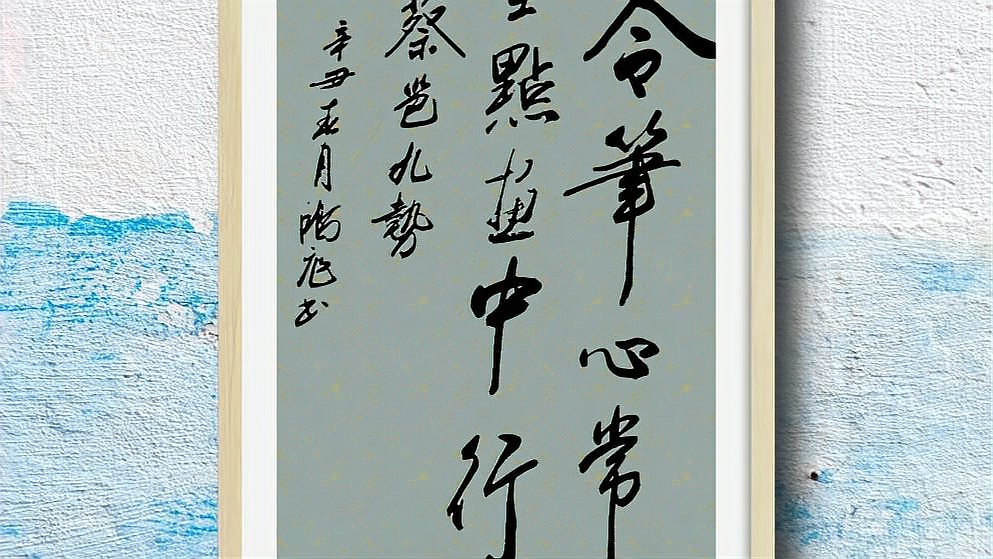 令筆心常
點畫中行
蔡邕九勢
辛丑春月 書